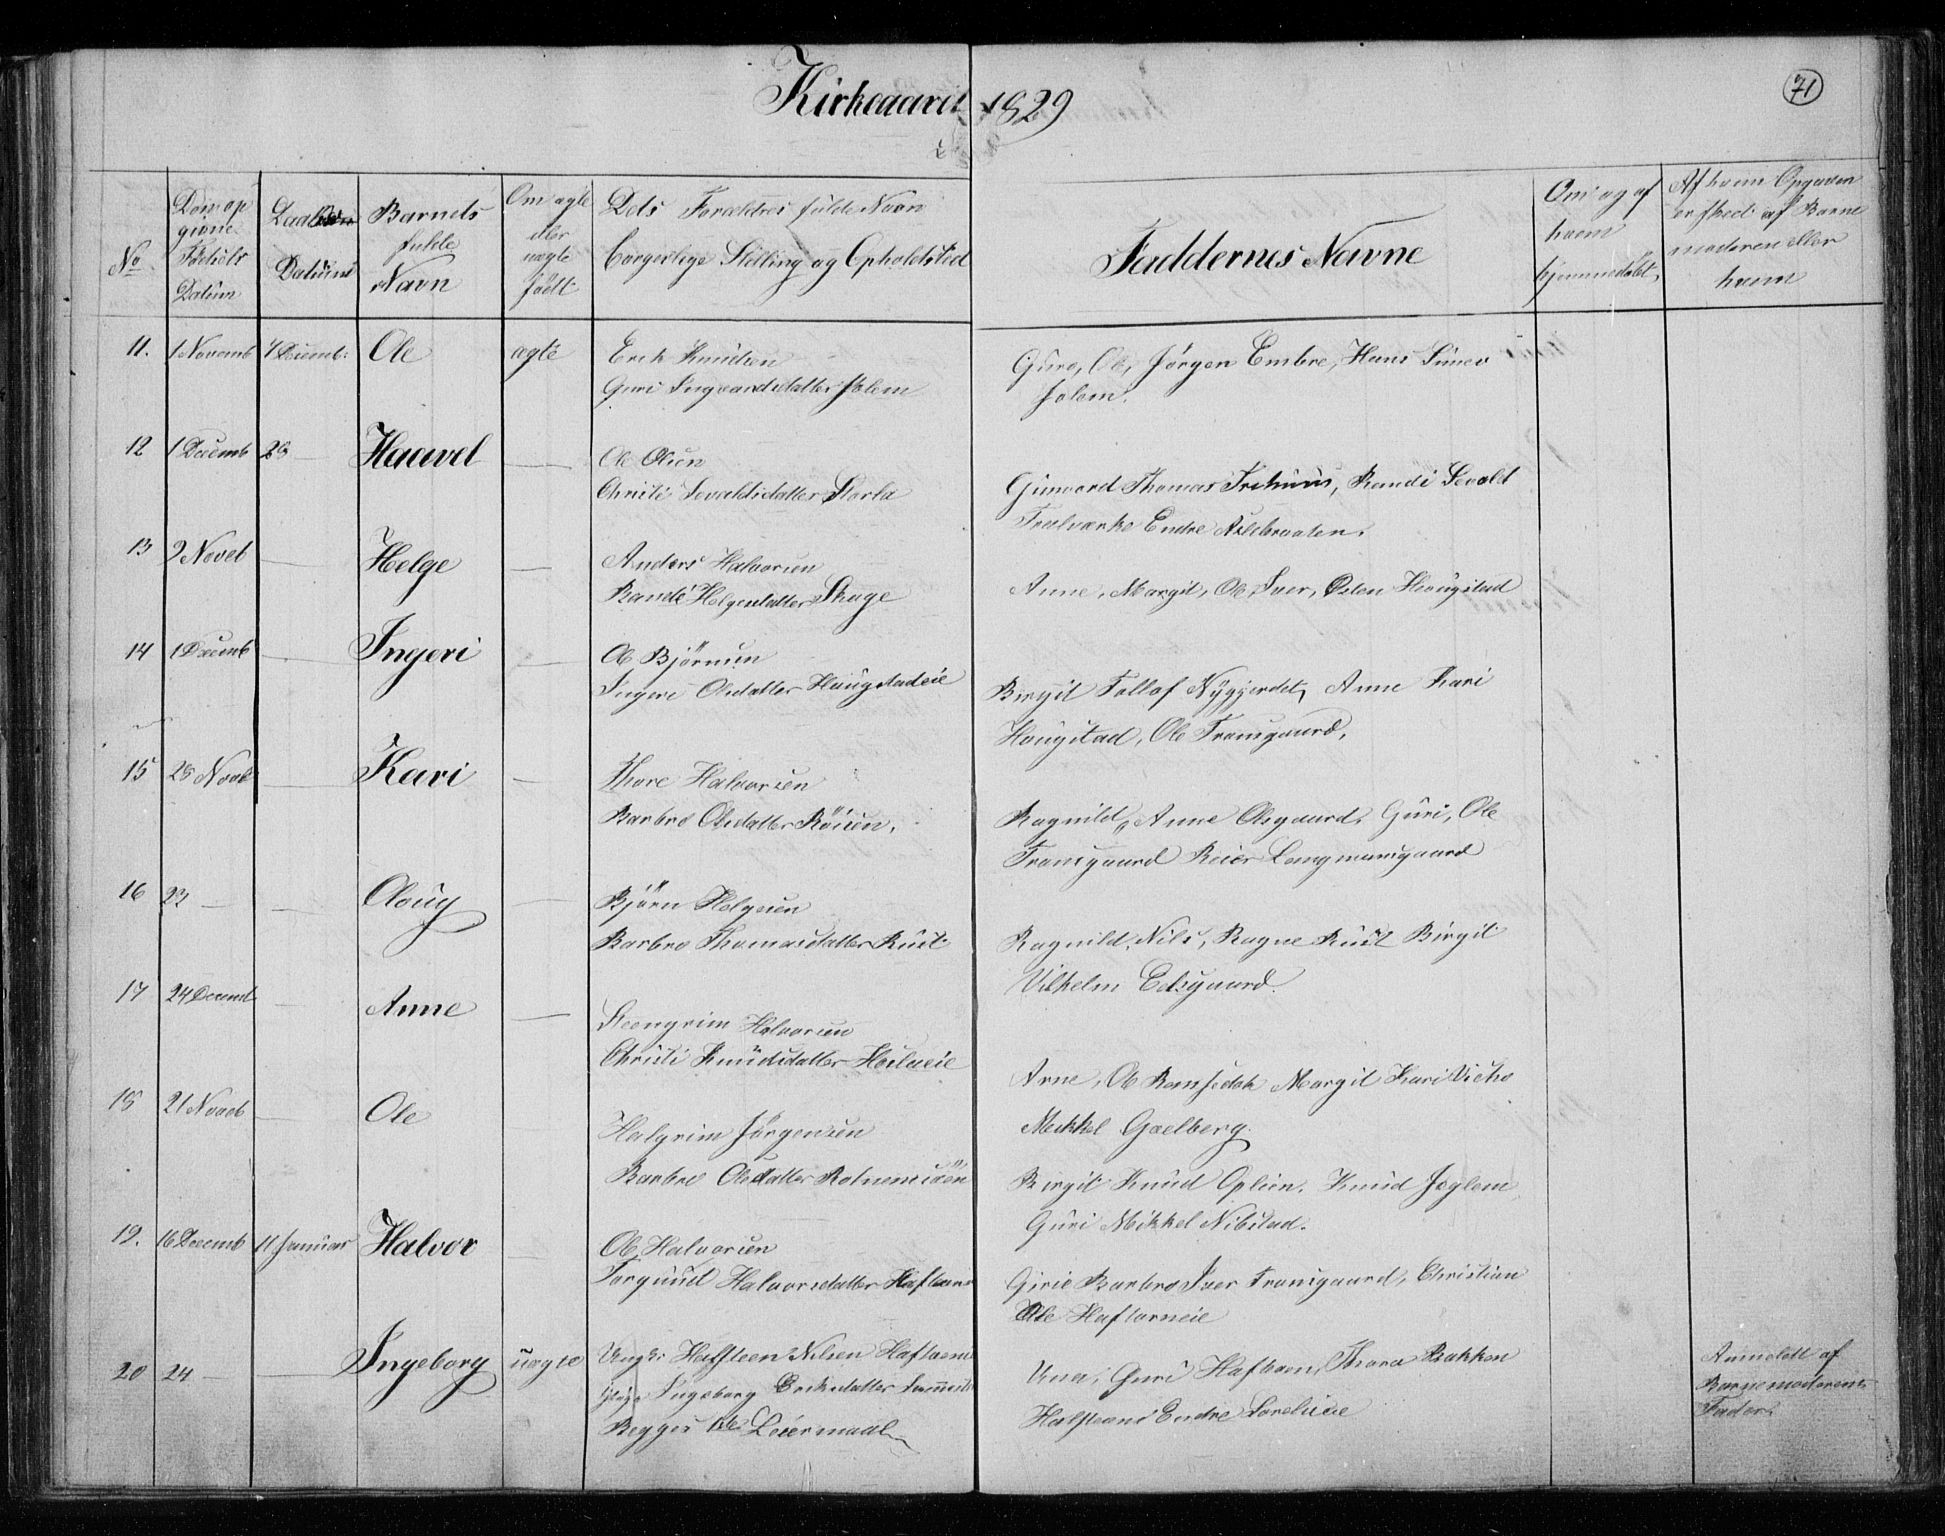 Kirkeaaret 1829
71
No
Den op
givne
Fødsels
Datum
Daabens
Datum
Barnets
fulde
Navn
Om ægte
eller
uægte
født
Dets Forældres fulde Navn
borgerlige Stilling og Opholdsted
Faddernes Navne
Om og af
hvem
hjemmedøbt
Af hvem Opgaven
er skeed af Barne
moderen eller
hvem
11. 1 Novemb 7 Decemb: Ole ægte Erik Knudsen
Guri Ingvardsdatter Solem
Guro, Ole, Jörgen Embre, Hans Simen
Solem.
12 1 Decemb 28 — Haavel — Ole Olsen
Christi Sevaldsdatter Storla
Gunvord Thomas Trehuus, Randi Sevald
Endre Aslebraaten.
13 9 Noveb — Helge — Anders Halvorsen
Randi Helgesdatter Skage
Anne, Margit, Ole, Iver, Osten Hougstad
14 1 Decemb — Ingeri — Ole Björnsen
Ingeri Olsdatter Haugstadeie
Birgit Tollof Nÿgjerdet, Anne Kari
Hougstad, Ole Tronsgaard,
15 28 Novb — Kari — Thore Halvorsen
Barbro Olsdatter Röisen,
Ragnild, Anne Olsgaard, Guri, Ole
Tronsgaard Reier Langmunsgaard
16 23 — — Oloug — Björn Helgesen
Barbro Thomasdatter Rust
Ragnild, Nils, Ragne Rust Birgit
Vilhelm Edsgaard.
17 24 Decemb — Anne — Steengrim Halvorsen
Christi Knudsdatter
Arne, Ole Margit Kari
Mekkel Gaelberg.
18 21 Noveb — Ole
Halgrim Jörgensen
Barbro Olesdatter
Birgit Knud Oplien. Knud
Guri Mikkel Nibstad.
19. 16 Decemb 11 Januar Halvor — Ole Halvorsen
Torgund Halvorsdatter Haftorn
Girie Barbro Iver Tronsgaard, Christian
Ole Haftorneie
20 24 — — Ingeborg uægte Ungk: Halsteen Nilsen Haftorn
Pige Ingeborg Eriksdatter
Begges 1ste Leiermaal
Una, Guri Haftorn, Thora Bakken
Halsteen Endre
Anmeldt af
Barnemoderens
Fader.